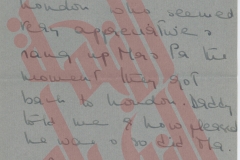 London who seemed
very appreciative &
rang up Mrs Pa the
moment they got
back to London. Daddy
told me of how pleased
he was & so did Ma.